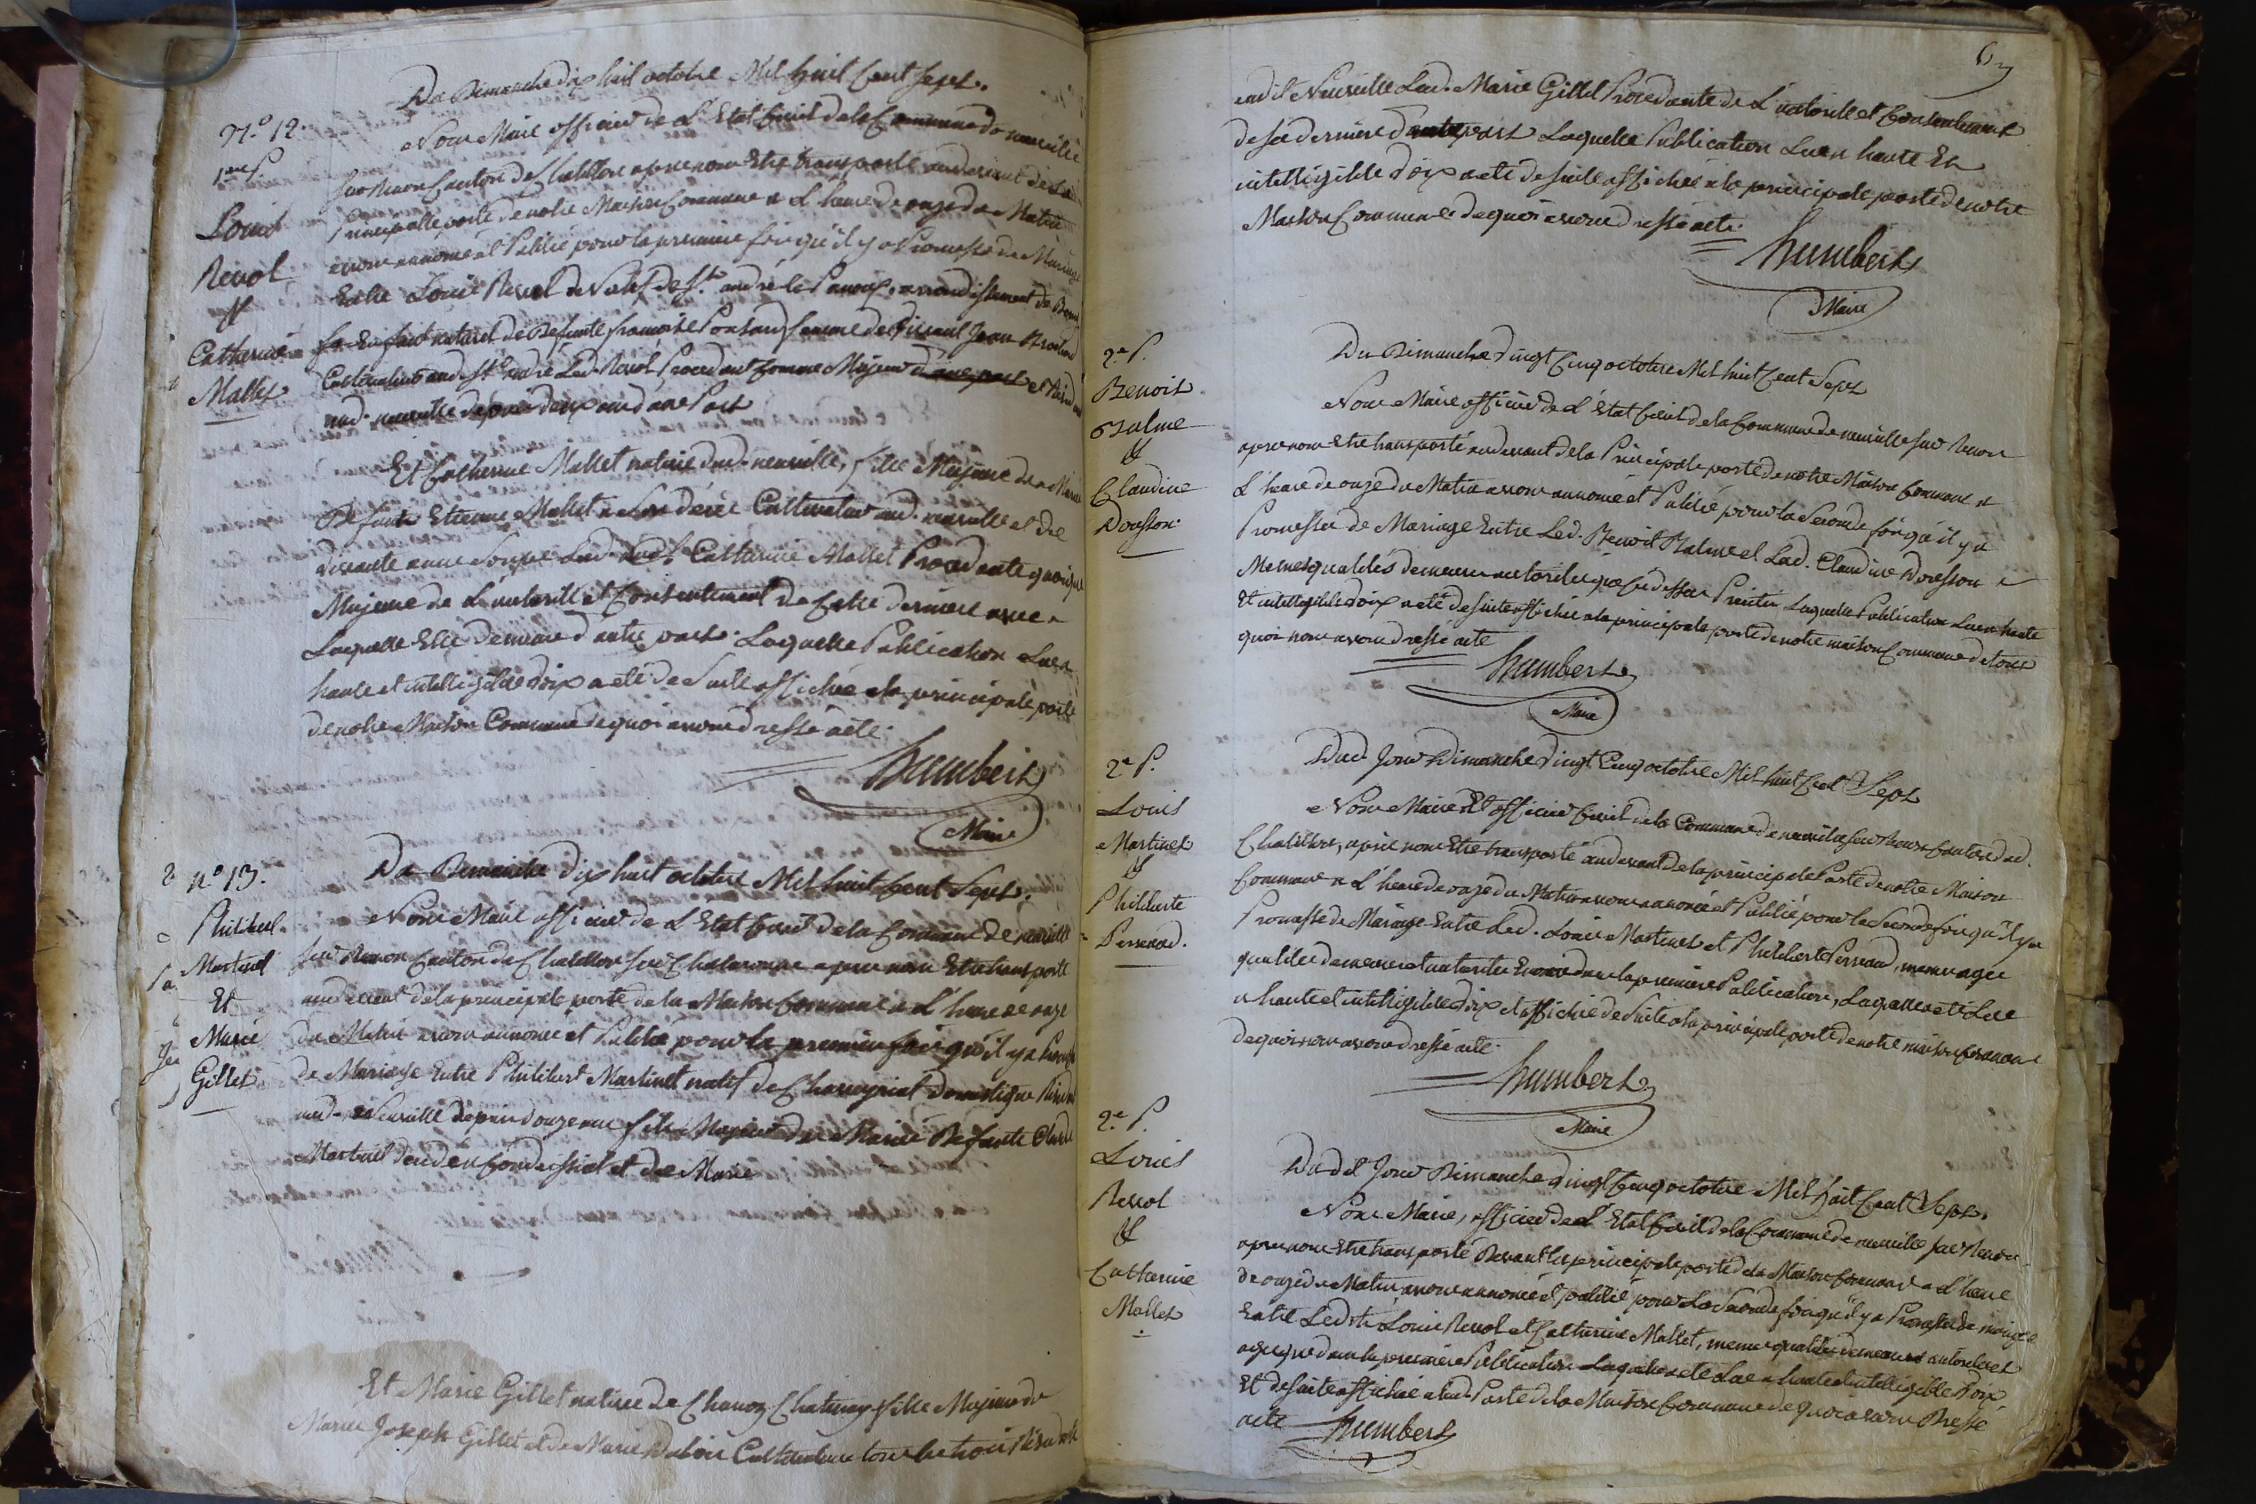 Du Dimanche dix huit octobre Mil huit Cent Sept.
N.o 12.
1ere P.
Louis
Revol
&
Catherine
Mallet
Nous Maire officier de L'Etat Civil de la Commune de neuville
sur Renon Canton de Chatillon apres nous Etre transporté audevant de la
Principalle porte de notre Maison Commune a L'heure de onze du Matin
avons annoncé et Publié pour la premiere fois qu'il y a Promesse de Mariage
Entre Louis Revol natif de St. andré le Panoux, arrondissement de Bourg
fils naturel de Defunte francoise femme de Jean
Cultivateur aud. St. andré Led. Revol Procedant Comme Majeur d'une part et Résidant
aud. neuville depuis deux ans d'une Part
Et Catherine Mallet native dud. neuville, fille Majeure de
Defunt Etienne Mallet a Son décès Cultivateur aud. neuville et de
vivante anne Lad. Catherine Mallet Procedante quoique
Majeure de L'autorité et Consentement de Cette derniere avec
Laquelle Elle demeure d'autre part. Laquelle Publication Lue a
haute et intelligible voix a été de Suite affichée a la principale porte
de notre Maison Commune de quoi avons dressé acte.
humbert
Maire
n.o 13.
Philibert
Martinet
Et
Marie
Gillet
Du Dimanche dix huit octobre Mil huit Cent Sept.
Nous Maire officier de L'Etat Civil de la Commune de neuville
sur Renon Canton de Chatillon sur Chalaronne apres nous Etre transporté
audevant de la principale porte de la Maison Commune a L'heure de onze
du Matin avons annoncé et Publié pour la premiere fois qu'il y a Promesse
de Mariage Entre Philibert Martinet natif de Chaveyriat domestique Résidant
aud. Neuville depuis douze ans fils Majeur de Defunt Claude
Martinet decédé a Condeissiat et de Marie
Et Marie Gillet native de Chanoz Chatenay fille Majeure de
Joseph Gillet et de Marie Dubois Cultivateurs tous les trois Résidants
aud.t Neuville Lad. Marie Gillet Procedante de L'autorité et Consentement
de Ses derniers d'autre part Laquelle Publication Lue a haute Et
intelligible voix a été de suite affichée a la principale porte de notre
Maison Commune de quoi avons dressé acte.
humbert
Maire
2.e P.
Benoit
Balme
&
Claudine
Doresson.
Du Dimanche vingt Cinq octobre Mil huit Cent Sept
Nous Maire officier de L'Etat Civil de la Commune de neuville sur Renon
apres nous Etre transporté audevant de la Principale porte de notre Maison Commune a
L'heure de onze du Matin avons annoncé et Publié pour la Seconde fois qu'il y a
Promesse de Mariage Entre Led. Benoit Balme et Lad. Claudine Doresson
Memes qualités demeures autorités que Ci dessus Laquelle Publication Lue a haute
Et intelligible voix a été de suite affichée a la principale porte de notre maison Commune de tout
quoi nous avons dressé acte
humbert
Maire
2.e P.
Louis
Martinet
&
Philiberte
Perraud.
Dud. Jour Dimanche vingt Cinq octobre Mil huit Cent Sept
Nous Maire et officier Civil de la Commune de neuville sur Renon Canton de
Chatillon, apres nous Etre transporté audevant de la principale Porte de notre Maison
Commune a L'heure de onze du Matin avons annoncé et Publié pour la Seconde fois qu'il y a
Promesse de Mariage Entre Led. Louis Martinet et Philiberte Perraud, memes ages
qualités demeures et autorités Enoncés dans la premiere Publication, Laquelle a été Lue
a haute et intelligible voix et affichée de Suite a la principale porte de notre maison Commune
de quoi nous avons dressé acte.
humbert
Maire
2.e P.
Louis
Revol
&
Catherine
Mallet
Dudit Jour Dimanche vingt Cinq octobre Mil huit Cent Sept.
Nous Maire, officier de L'Etat Civil de la Commune de neuville sur Renon
apres nous Etre transporté Devant la principale porte de la Maison Commune a L'heure
de onze du Matin avons annoncé et publié pour La Seconde fois qu'il y a Promesse de mariage
Entre Ledit Louis Revol et Catherine Mallet, memes qualités demeures autorités et
ages que dans la premiere Publication Laquelle a été Lue a haute et intelligible Voix
Et de suite affichée a lad. Porte de la Maison Commune de quoi avons Dressé
acte humbert